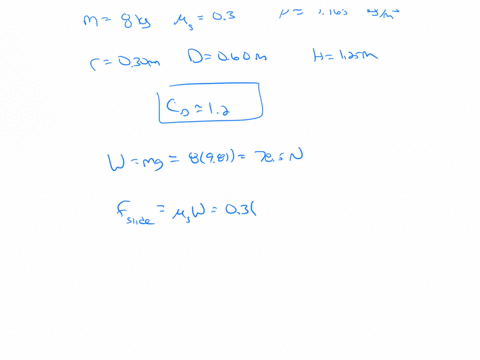 m = 8 kg   μs = 0.3   ρ = 1.163 kg/m³
r = 0.30m   D = 0.60 m   H = 1.25m
C_D ≈ 1.2
W = mg = 8(9.81) = 78.5 N
F_slide = μs W = 0.3(